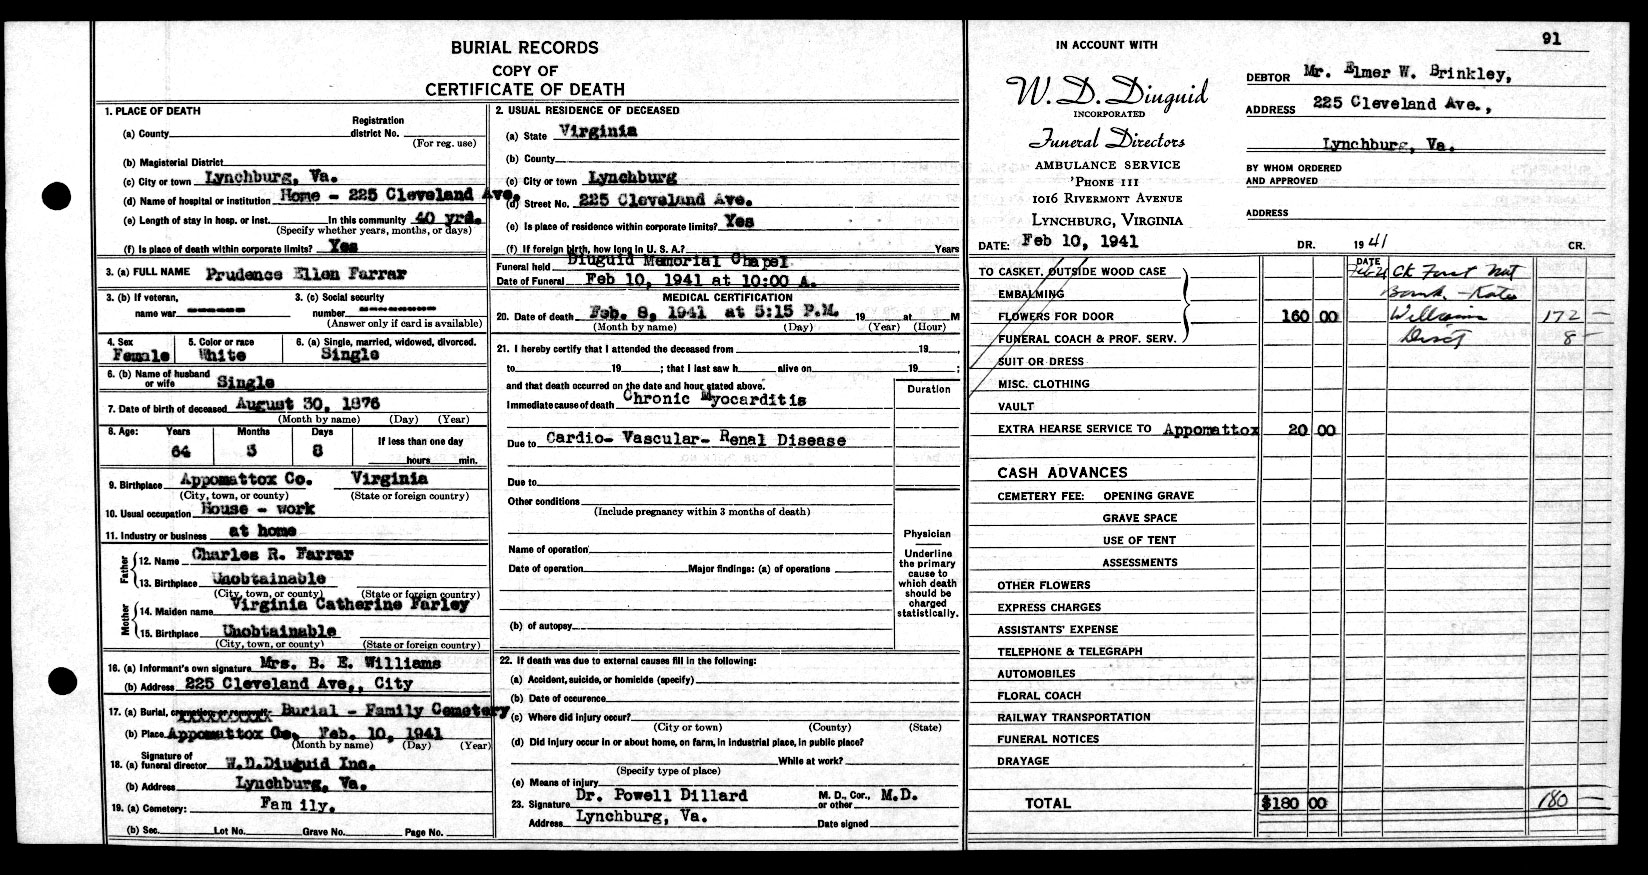 BURIAL RECORDS
COPY OF
CERTIFICATE OF DEATH
1. PLACE OF DEATH
Registration
(a) County district No.
(For reg. use)
(b) Magisterial District
(c) City or town Lynchburg, Va.
(d) Name of hospital or institution Home - 225 Cleveland Ave.
(e) Length of stay in hosp. or inst. In this community 40 yrs.
(Specify whether years, months, or days)
(f) Is place of death within corporate limits? Yes
3. (a) FULL NAME Prudence Ellen Farrar
3. (b) If veteran, 3. (c) Social security
name war ------ number --------
(Answer only if card is available)
4. Sex 5. Color or race 6. (a) Single, married, widowed, divorced.
Female White Single
6. (b) Name of husband
or wife Single
7. Date of birth of deceased August 30, 1876
(Month by name) (Day) (Year)
8. Age: Years Months Days If less than one day
64 5 8 hours min.
9. Birthplace Appomattox Co. Virginia
(City, town, or county) (State or foreign country)
10. Usual occupation House - work
11. Industry or business at home
Father
12. Name Charles R. Farrar
13. Birthplace Unobtainable
(City, town, or county) (State or foreign country)
Mother
14. Maiden name Virginia Catherine Farley
15. Birthplace Unobtainable
(City, town, or county) (State or foreign country)
16. (a) Informant's own signature Mrs. B. E. Williams
(b) Address 225 Cleveland Ave,, City
17. (a) Burial, cremation or removal Burial - Family Cemetery
(b) Place Appomattox Co, Feb. 10, 1941
(Month by name) (Day) (Year)
Signature of
18. (a) funeral director W.D.Diuguid Inc.
(b) Address Lynchburg, Va.
19. (a) Cemetery: Fam ily.
(b) Sec. Lot No. Grave No. Page No.
2. USUAL RESIDENCE OF DECEASED
(a) State Virginia
(b) County
(c) City or town Lynchburg
(d) Street No. 225 Cleveland Ave.
(e) Is place of residence within corporate limits? Yes
(f) If foreign birth, how long in U. S. A.? Years
Funeral held Diuguid Memorial Chapel
Date of Funeral Feb 10, 1941 at 10:00 A.
MEDICAL CERTIFICATION
20. Date of death Feb. 8, 1941 at 5:15 P.M. 19 at M
(Month by name) (Day) (Year) (Hour)
21. I hereby certify that I attended the deceased from 19 ,
to 19 ; that I last saw h alive on 19 ;
and that death occurred on the date and hour stated above. Duration
Immediate cause of death Chronic Myocarditis
Due to Cardio- Vascular- Renal Disease
Due to
Other conditions
(Include pregnancy within 3 months of death)
Name of operation
Date of operation Major findings: (a) of operations
(b) of autopsy
Physician
Underline
the primary
cause to
which death
should be
charged
statistically.
22. If death was due to external causes fill in the following:
(a) Accident, suicide, or homicide (specify)
(b) Date of occurence
(c) Where did injury occur?
(City or town) (County) (State)
(d) Did injury occur in or about home, on farm, in industrial place, in public place?
While at work?
(Specify type of place)
(e) Means of injury
23. Signature Dr. Powell Dillard M. D., Cor., or other M.D.
Address Lynchburg, Va. Date signed
91
IN ACCOUNT WITH
W. D. Diuguid
INCORPORATED
Funeral Directors
AMBULANCE SERVICE
'PHONE 111
1016 RIVERMONT AVENUE
LYNCHBURG, VIRGINIA
DEBTOR Mr. Elmer W. Brinkley,
ADDRESS 225 Cleveland Ave.,
Lynchburg, Va.
BY WHOM ORDERED
AND APPROVED
ADDRESS
DATE: Feb 10, 1941 DR. 1941 CR.
DATE
TO CASKET, OUTSIDE WOOD CASE Feb 21 Ck First Nat
EMBALMING Bank - Kate
FLOWERS FOR DOOR 160 00 Williams 172 —
FUNERAL COACH & PROF. SERV. Disct 8 —
SUIT OR DRESS
MISC. CLOTHING
VAULT
EXTRA HEARSE SERVICE TO Appomattox 20 00
CASH ADVANCES
CEMETERY FEE: OPENING GRAVE
GRAVE SPACE
USE OF TENT
ASSESSMENTS
OTHER FLOWERS
EXPRESS CHARGES
ASSISTANTS' EXPENSE
TELEPHONE & TELEGRAPH
AUTOMOBILES
FLORAL COACH
RAILWAY TRANSPORTATION
FUNERAL NOTICES
DRAYAGE
TOTAL $180 00 180 —